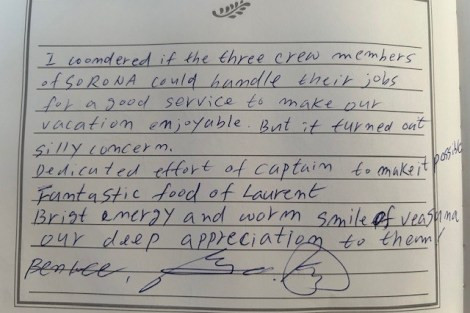 I woondered if the three crew members
of SORONA could handle their jobs
for a good service to make our
vacation enjoyable. But it turned out
silly concern.
Dedicated effort of captain to make it possible
Fantastic food of Laurent
Brigt energy and worm smile of
our deep appreciation to them!